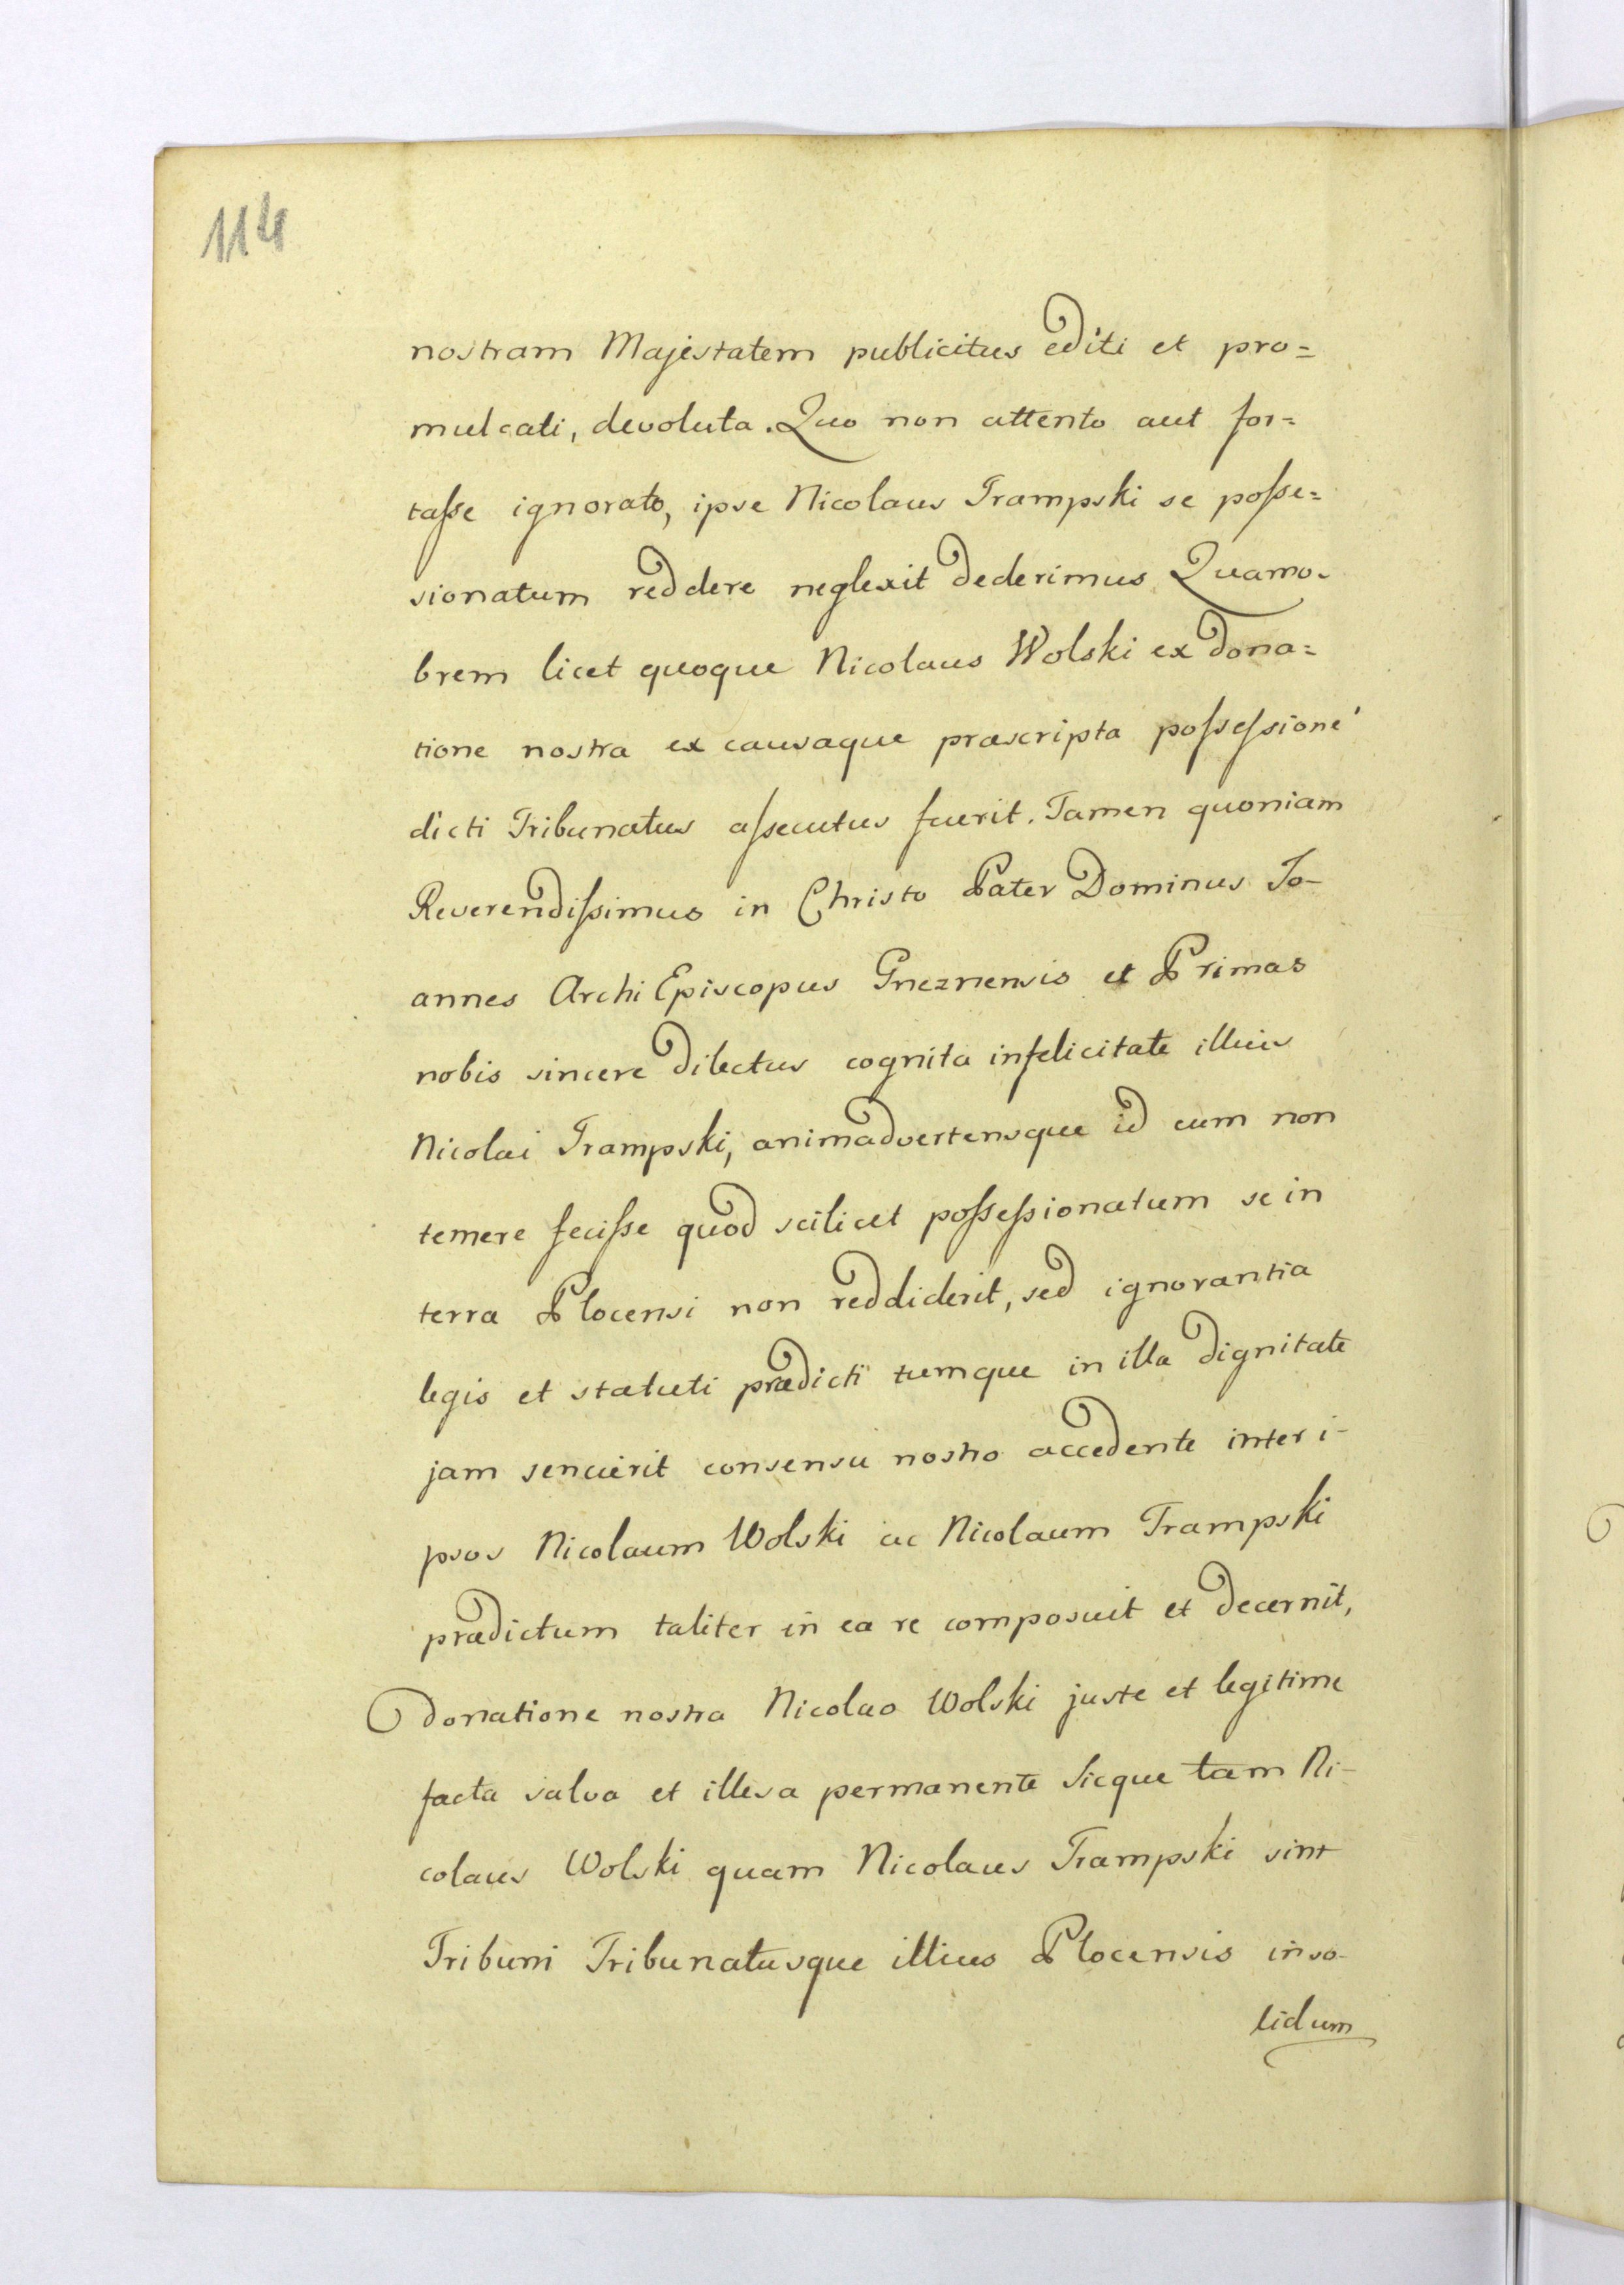 114
nostram Majestatem publicitus editi et pro=
mulcati, devoluta. Quo non attento aut for=
taſse ignorato, ipse Nicolaus Trampski se poſse=
sionatum reddere neglexit dederimus Quamo-
brem licet quoque Nicolaus Wolski ex dona=
tione nostra ex causaque præscripta poſseſsione
dicti Tribunatus aſsecutus fuerit. Tamen quoniam
Reverendiſsimus in Christo Pater Dominus Jo-
annes Archi Episcopus Gneznensis et Primas
nobis sincere dilectus cognita infelicitate illius
Nicolai Trampski, animadvertensque id eum non
temere feciſse quod scilicet poſseſsionatum se in
terra Plocensi non reddiderit, sed ignorantia
legis et statuti prædicti tumque in illa dignitate
jam senuerit consensu nostro accedente inter i-
psos Nicolaum Wolski ac Nicolaum Trampski
prædictum taliter in ea re composuit et decernit,
donatione nostra Nicolao Wolski juste et legitime
facta salva et illesa permanente Sicque tam Ni-
colaus Wolski quam Nicolaus Trampski sint
Tribuni Tribunatusque illius Plocensis inso-
lidum